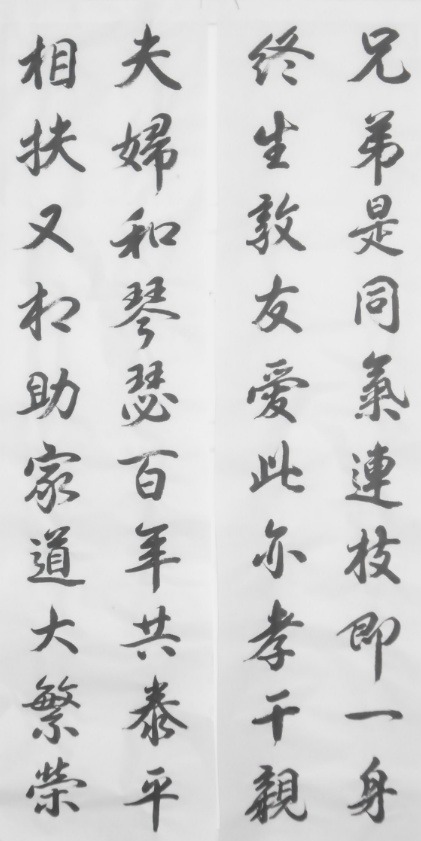 兄弟是同氣連枝即一身
終生敦友愛此亦孝干親
夫婦和琴瑟百年共泰平
相扶又相助家道大繁榮